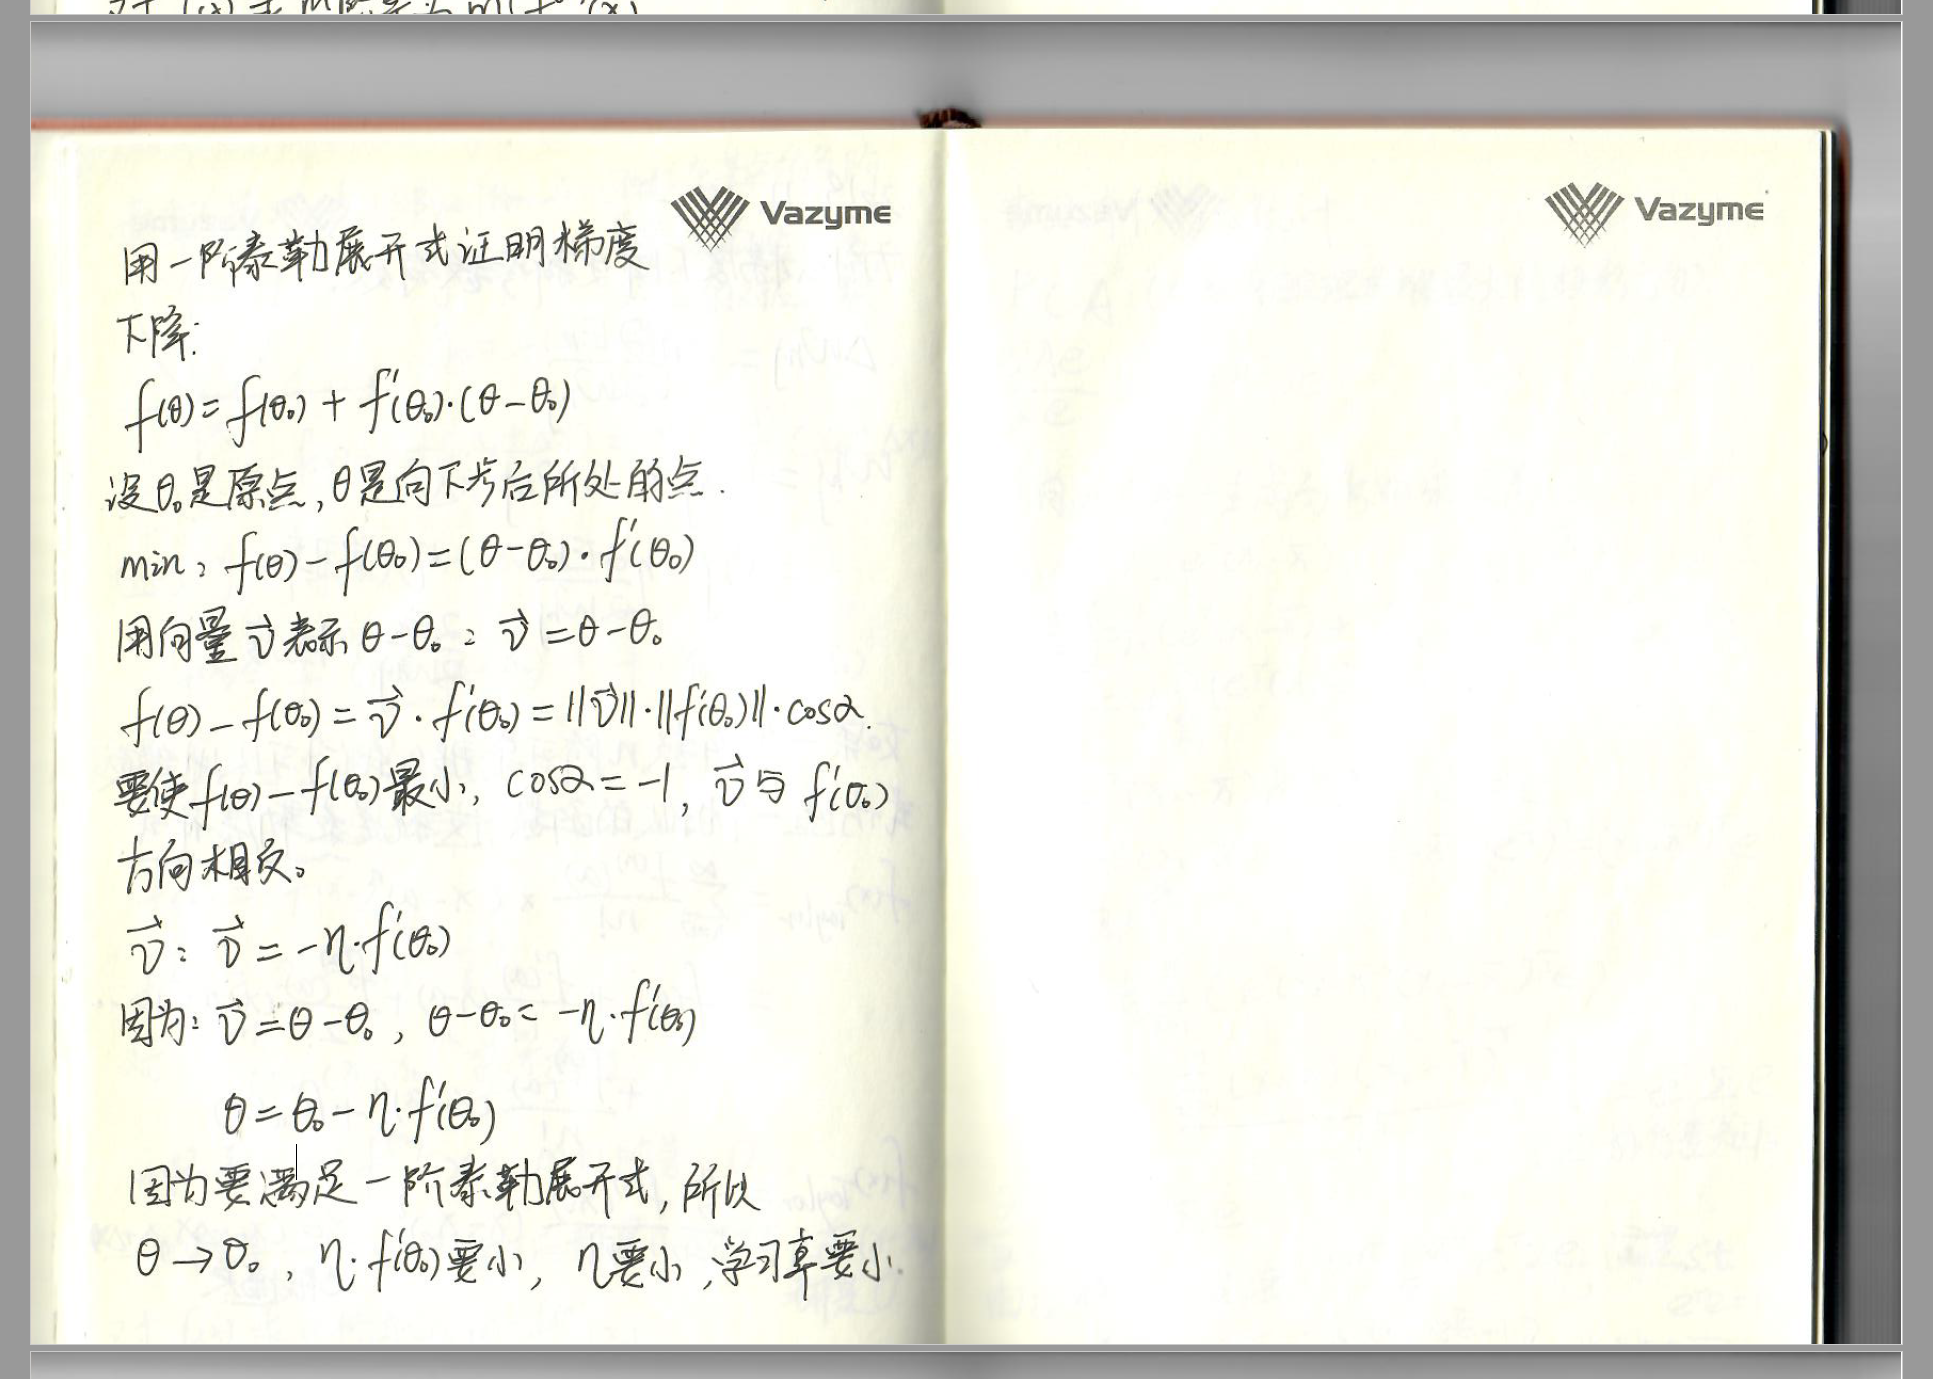 Vazyme
Vazyme
用一阶泰勒展开式证明梯度
下降:
f(θ)=f(θ₀)+f′(θ₀)·(θ-θ₀)
设θ₀是原点,θ是向下步后所处的点.
min: f(θ)-f(θ₀)=(θ-θ₀)·f′(θ₀)
用向量v⃗表示θ-θ₀: v⃗=θ-θ₀
f(θ)-f(θ₀)=v⃗·f′(θ₀)=||v⃗||·||f′(θ₀)||·cosα.
要使f(θ)-f(θ₀)最小, cosα=-1, v⃗与f′(θ₀)
方向相反。
v⃗: v⃗=-η·f′(θ₀)
因为: v⃗=θ-θ₀, θ-θ₀=-η·f′(θ₀)
θ=θ₀-η·f′(θ₀)
因为要满足一阶泰勒展开式,所以
θ→θ₀, η·f′(θ₀)要小, η要小,学习率要小.